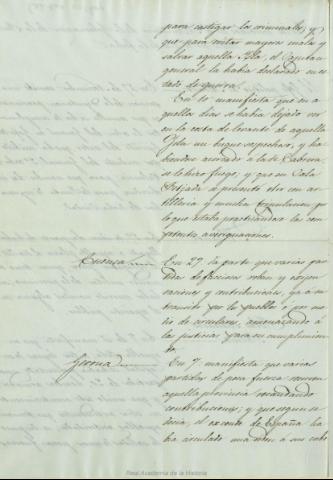 para castigar los criminales, y
que para evitar mayores males y
salvar aquella Isla, el Capitan
general la habia declarado en es
tado de guerra.
En 10 manifiesta que en a
quellos dias se habia dejado ver
en la costa de levante de aquella
Isla un buque sospechoso, y ha
biendose acercado a la de Cabrera
se le hizo fuego, y que en Cala
se presentó otro con ar
tilleria y mucha tripulacion por
lo que estaba practicandose las com
petentes averiguaciones.
Cuenca
En 27 da parte que varias par
tidas de facciosos roban y
raciones y contribuciones, ya á su
transito por los pueblos ó por me
dio de circulares, amenazando á
las justicias para su cumplimien
to.
Gerona
En 7 manifiesta que varias
partidas de poca fuerza corren
aquella provincia recaudando
contribuciones; y que segun se
decia, el exconde de España ha
bia circulado una orden á sus cabe
Real Academia de la Historia